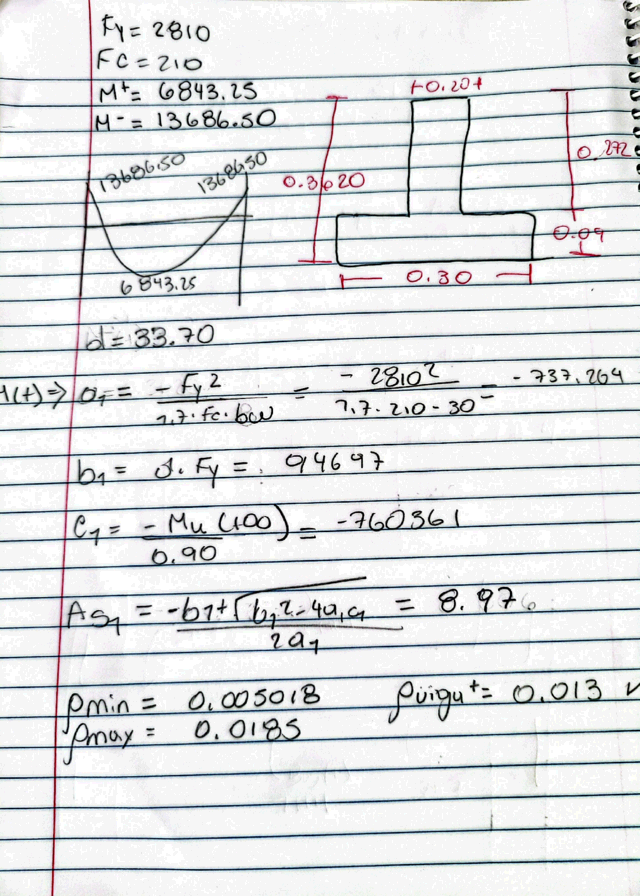 Fy = 2810
FC = 210
M+ = 6843.25
M- = 13686.50
13686.50 13686.50
6843.25
0.20
0.3620
0.272
0.09
0.30
d = 33.70
M(+) => a1 = -Fy2 / 1.7·fc·bw = -2810² / 1.7·210·30 = -737.264
b1 = d·Fy = 94697
C1 = -Mu(100) / 0.90 = -760361
As1 = -b1+√b1²-4a1c1 / 2a1 = 8.976
ρmin = 0.005018 ρvigu+ = 0.013 ✓
ρmax = 0.0185